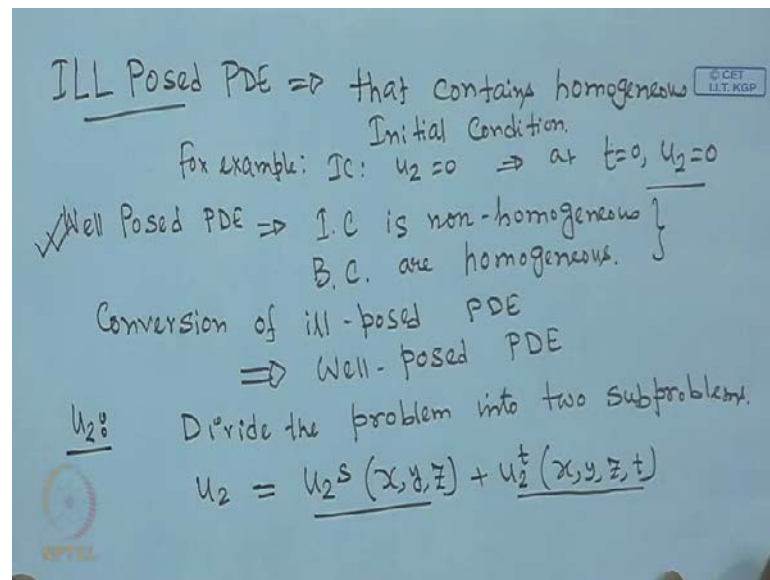 ILL Posed PDE => that contains homogeneous
© CET
I.I.T. KGP
Initial Condition.
For example: IC: u2 = 0 => at t=0, u2=0
✓Well Posed PDE => I.C is non-homogeneous }
B.C. are homogeneous.
Conversion of ill-posed PDE
=> Well-posed PDE
u2: Divide the problem into two subproblems.
u₂ = u₂ˢ (x,y,z) + u₂ᵗ (x,y,z,t)
NPTEL